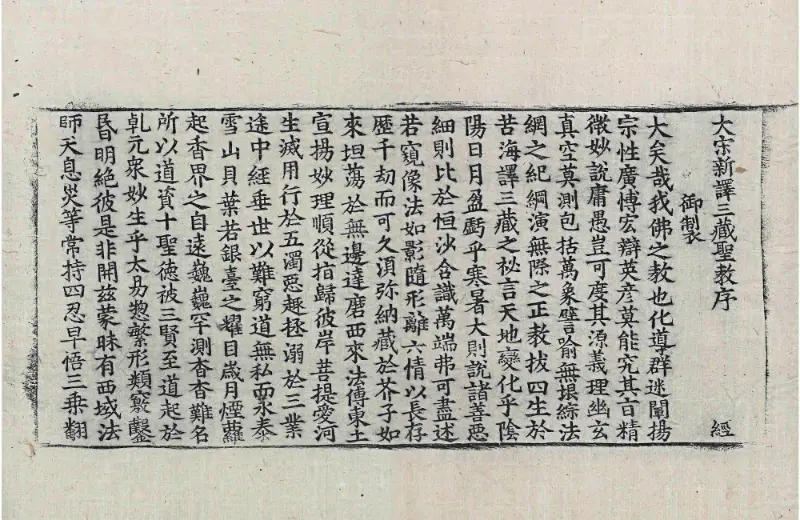 大宋新譯三藏聖教序 經
御製
大矣哉我佛之教也化導群迷闡揚
宗性廣博宏辯英彥莫能究其旨精
微妙說庸愚豈可度其源義理幽玄
真空莫測包括萬象譬喻無垠綜法
網之紀綱演無際之正教拔四生於
苦海譯三藏之祕言天地變化乎陰
陽日月盈虧乎寒暑大則說諸善惡
細則比於恒沙含識萬端弗可盡述
若窺像法如影隨形離六情以長存
歷千劫而可久湏弥納藏於芥子如
來坦蕩於無邊達磨西來法傳東土
宣揚妙理順從指歸彼岸菩提愛河
生滅用行於五濁惡趣拯溺於三業
途中經垂世以難窮道無私而永泰
雪山貝葉若銀臺之耀目歲月煙蘿
起香界之自遠巍巍罕測杳杳難名
所以道資十聖德被三賢至道起於
乹元衆妙生乎太易惣繁形類竅鑿
昏明絕彼是非開茲蒙昧有西域法
師天息災等常持四忍早悟三乘翻